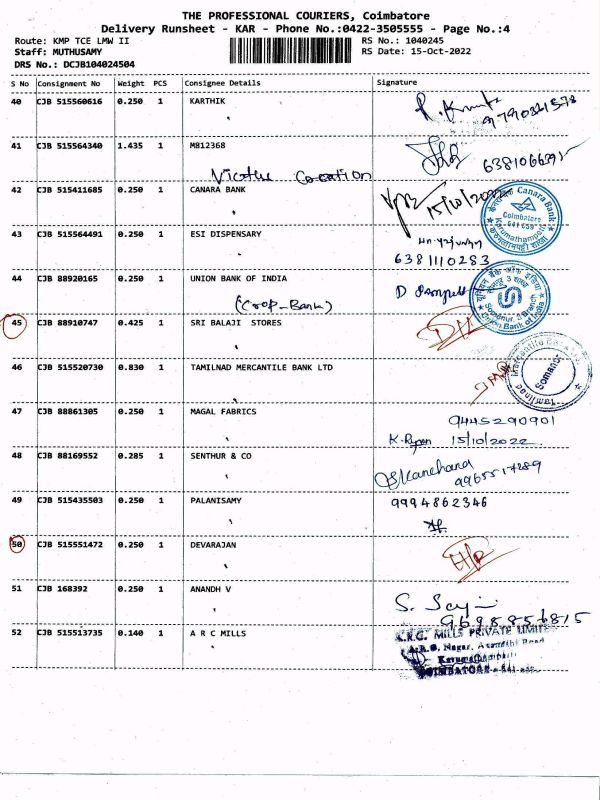 THE PROFESSIONAL COURIERS, Coimbatore
Delivery Runsheet - KAR - Phone No.:0422-3505555 - Page No.:4
Route: KMP TCE LMW II RS No.: 1040245
Staff: MUTHUSAMY RS Date: 15-Oct-2022
DRS No.: DCJB104024504
S No Consignment No Weight PCS Consignee Details Signature
40 CJB 515560616 0.250 1 KARTHIK
41 CJB 515564340 1.435 1 MB12368
42 CJB 515411685 0.250 1 CANARA BANK 15/10/2022
Canara Bank
Coimbatore
641 659
Karumathampatti
43 CJB 515564491 0.250 1 ESI DISPENSARY
6381110283
44 CJB 88920165 0.250 1 UNION BANK OF INDIA
(Crop-Bank)
Union Bank of India
45 CJB 88910747 0.425 1 SRI BALAJI STORES
46 CJB 515520730 0.830 1 TAMILNAD MERCANTILE BANK LTD
Tamilnad Mercantile Bank
Somanur
47 CJB 88861305 0.250 1 MAGAL FABRICS
9445290901
15/10/2022
48 CJB 88169552 0.285 1 SENTHUR & CO
49 CJB 515435503 0.250 1 PALANISAMY 9994862346
50 CJB 515551472 0.250 1 DEVARAJAN
51 CJB 168392 0.250 1 ANANDH V
9698856815
52 CJB 515513735 0.140 1 A R C MILLS
MILLS PRIVATE LIMITED
Nagar,
COIMBATORE